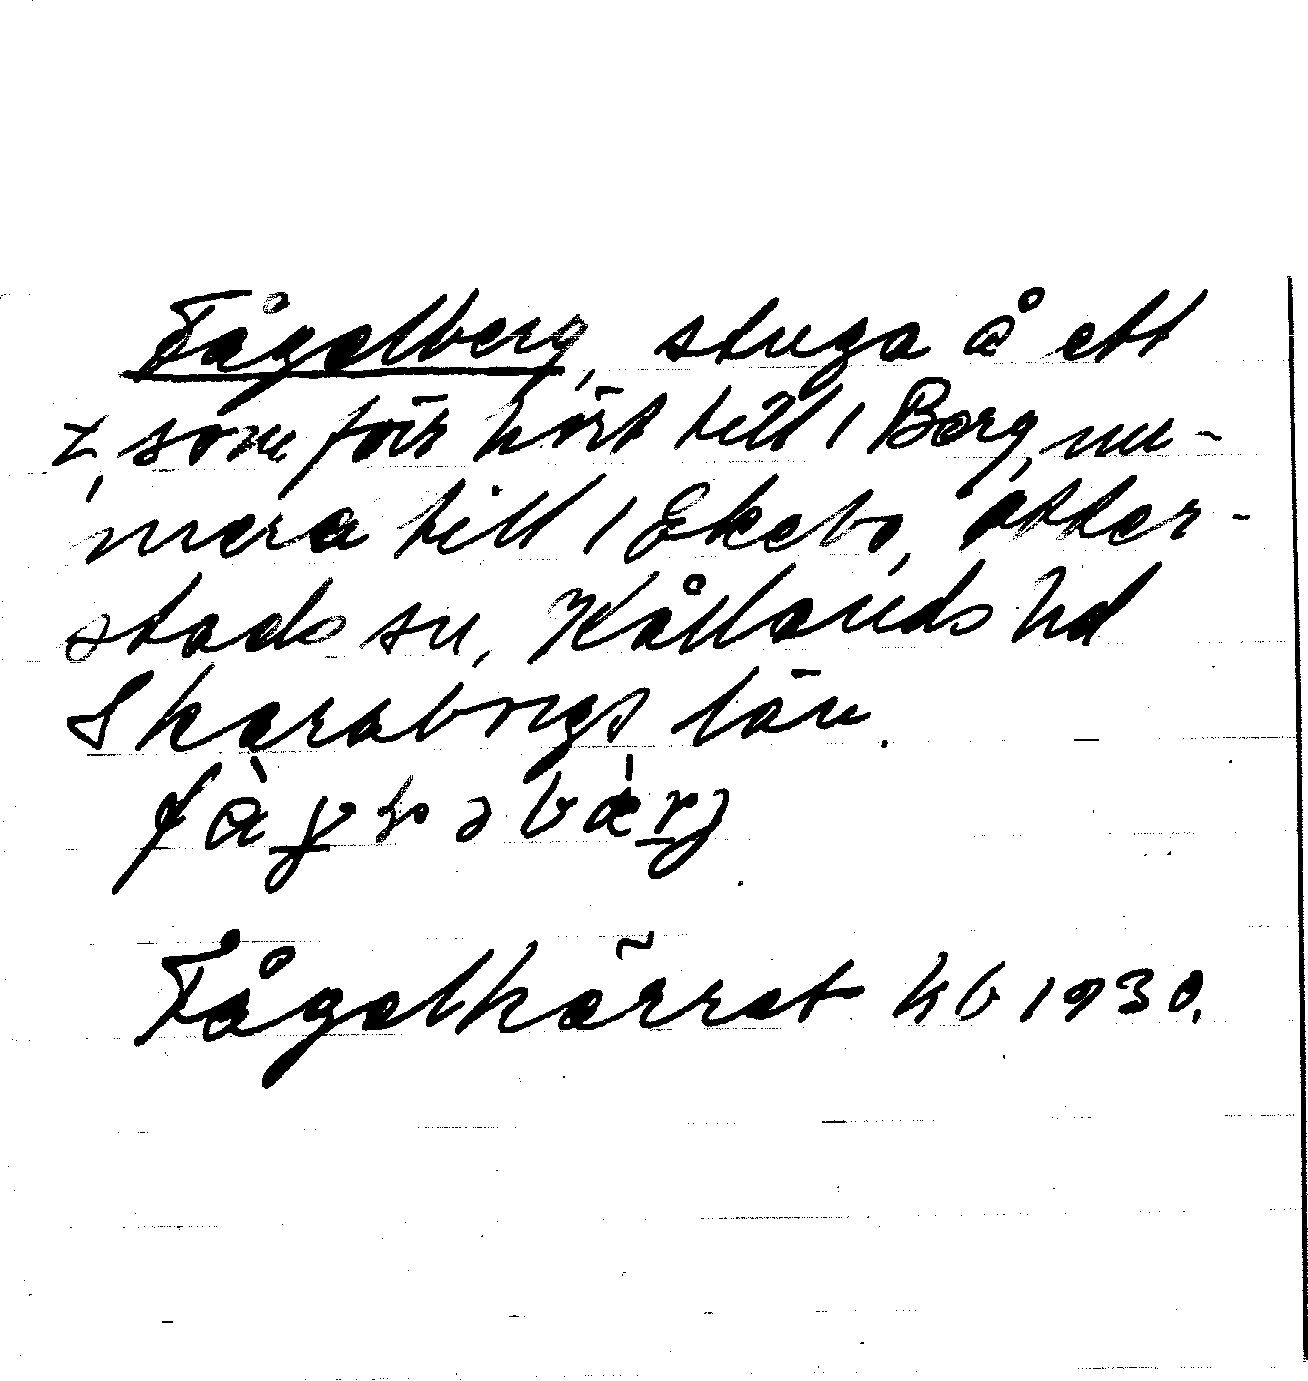 Fågelberg, stuga å ett
t, som förr hört till 1 Berg, nu-
mera till 1 Ekebo, Otter-
stads sn, Kållands hd
Skaraborgs län.
Fågelkärret kb 1930.